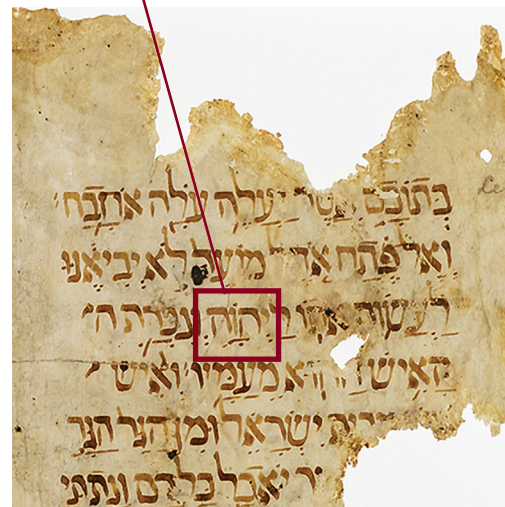 בתוכם אשר יעלה עלה או זבח
ואל פתח אהל מועד לא יביאנו
לעשות אתו ליהוה ונכרת ה
האיש ההוא מעמיו ואיש
ישראל ומן הגר הגר
יאכל כל דם ונתתי